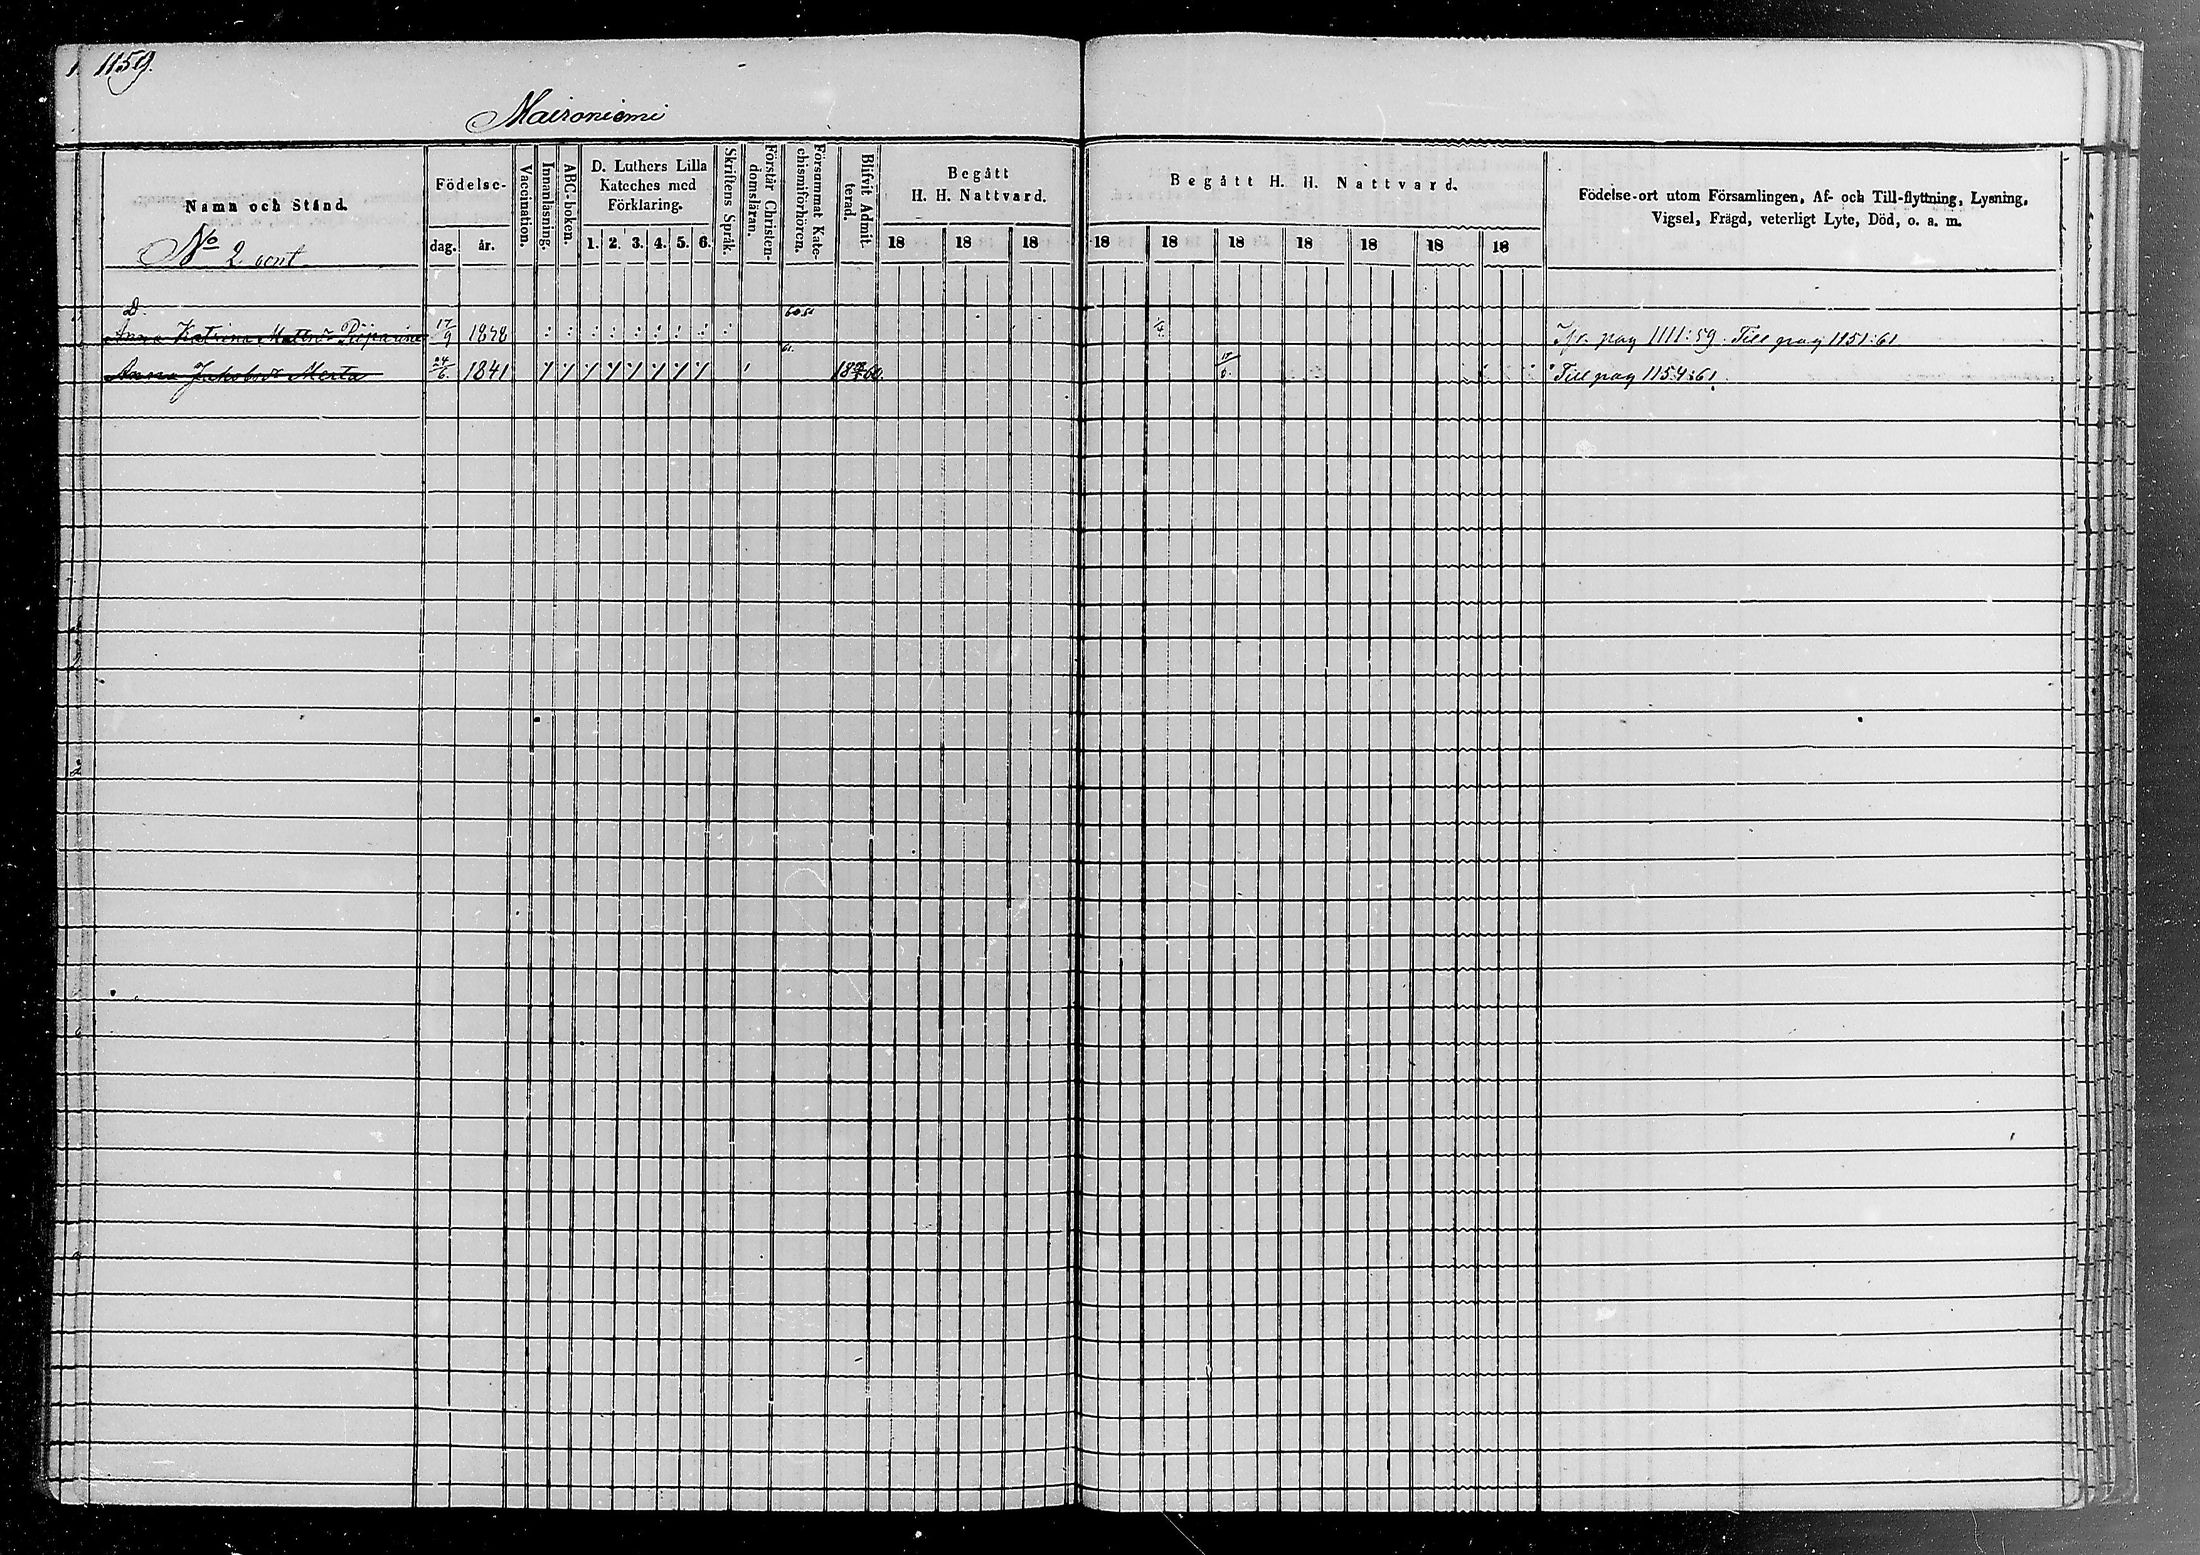 1159.
Maironiemi
Namn och Stånd.
Födelse-
dag. år.
Vaccination.
Innanläsning.
ABC-boken.
D. Luthers Lilla
Kateches med
Förklaring.
1. 2. 3. 4. 5. 6.
Skriftens Språk.
Förstår Christen-
domsläran.
Försummat Kate-
chismiförhören.
Blifvit Admit-
terad.
Begått
H. H. Nattvard.
18 18 18
Begått H. H. Nattvard.
18 18 18 18 18 18 18
Födelse-ort utom Församlingen, Af- och Till-flyttning, Lysning,
Vigsel, Frägd, veterligt Lyte, Död, o. a. m.
No 2 cont
D.
Anna Katrina Mattsdr 17/9 1828 : : : : : : : : : Ifr. pag 1111:59. Till pag 1151:61
Anna Jakobsdr 24/6. 1841 61. 17/6. Till pag 1154:61